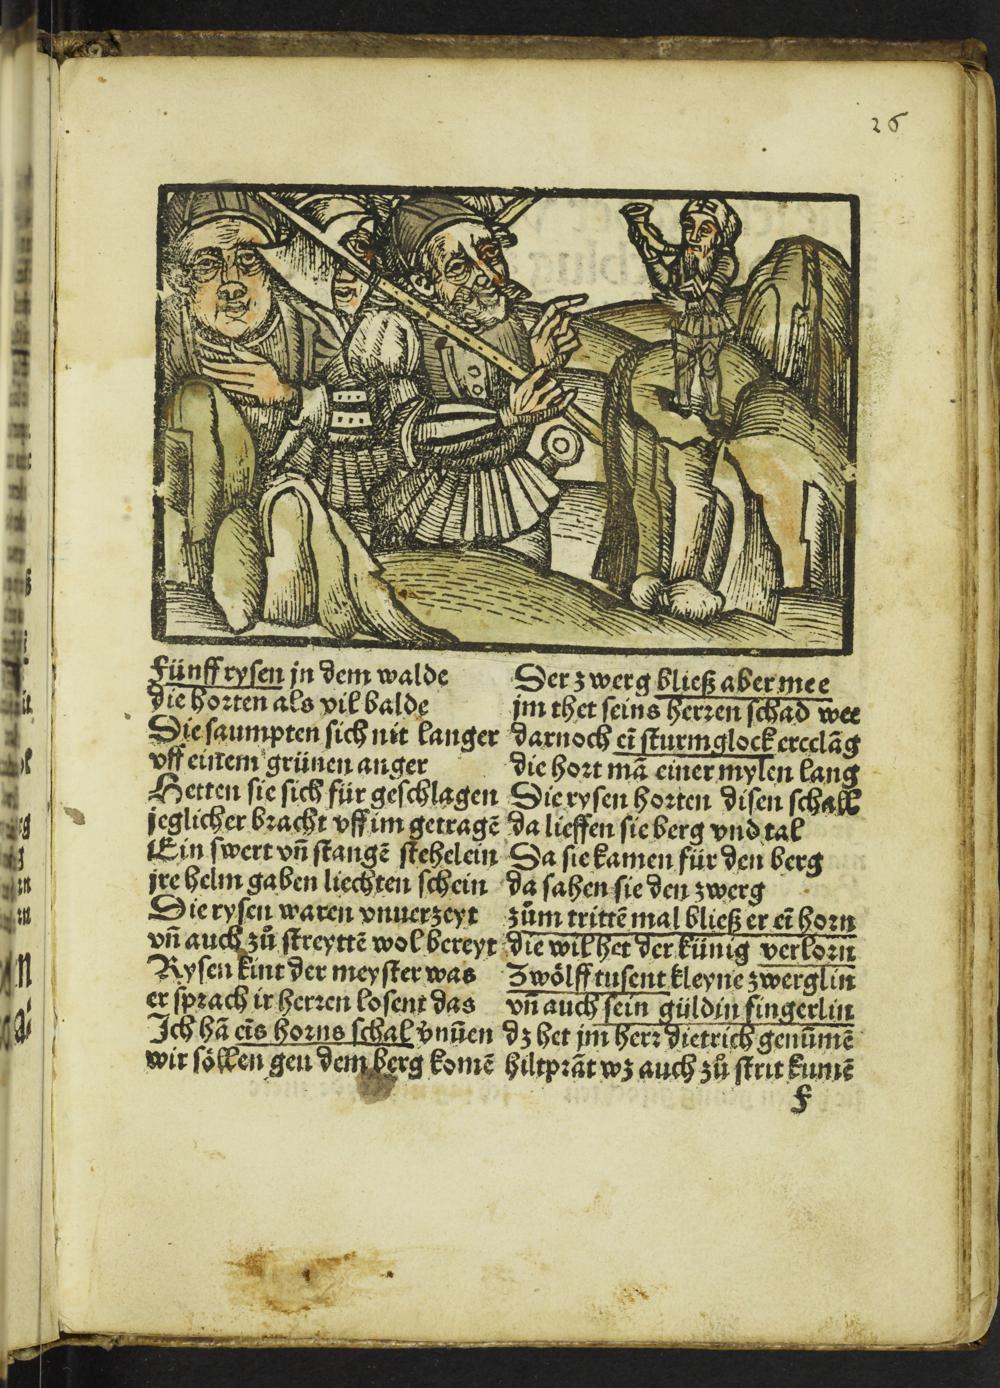 26
Fünff rysen jn dem walde
die horten als vil balde
Die saumpten sich nit langer
vff einem grünen anger
Hetten sie sich für geschlagen
jeglicher bracht vff im getragē
Ein swert vñ stangē stehelein
jre helm gaben liechten schein
Die rysen waren vnuerzeyt
vñ auch zů streyttē wol bereyt
Rysen kint der meyster was
er sprach ir herren losent das
Ich hā eīs horns schal vnūen
wir söllen gen dem berg komē
Der zwerg bließ aber mee
jm thet seins herzen schad wee
darnoch eī sturmglock ercclāg
die hort mā einer mylen lang
Die rysen horten disen schall
da lieffen sie berg vnd tal
Da sie kamen für den berg
da sahen sie den zwerg
zům trittē mal bließ er eī horn
die wil het der künig verlorn
Zwölff tusent kleyne zwerglin
vñ auch sein güldin fingerlin
dz het jm herr dietrich genūmē
hiltprāt wz auch zů strit kumē
f